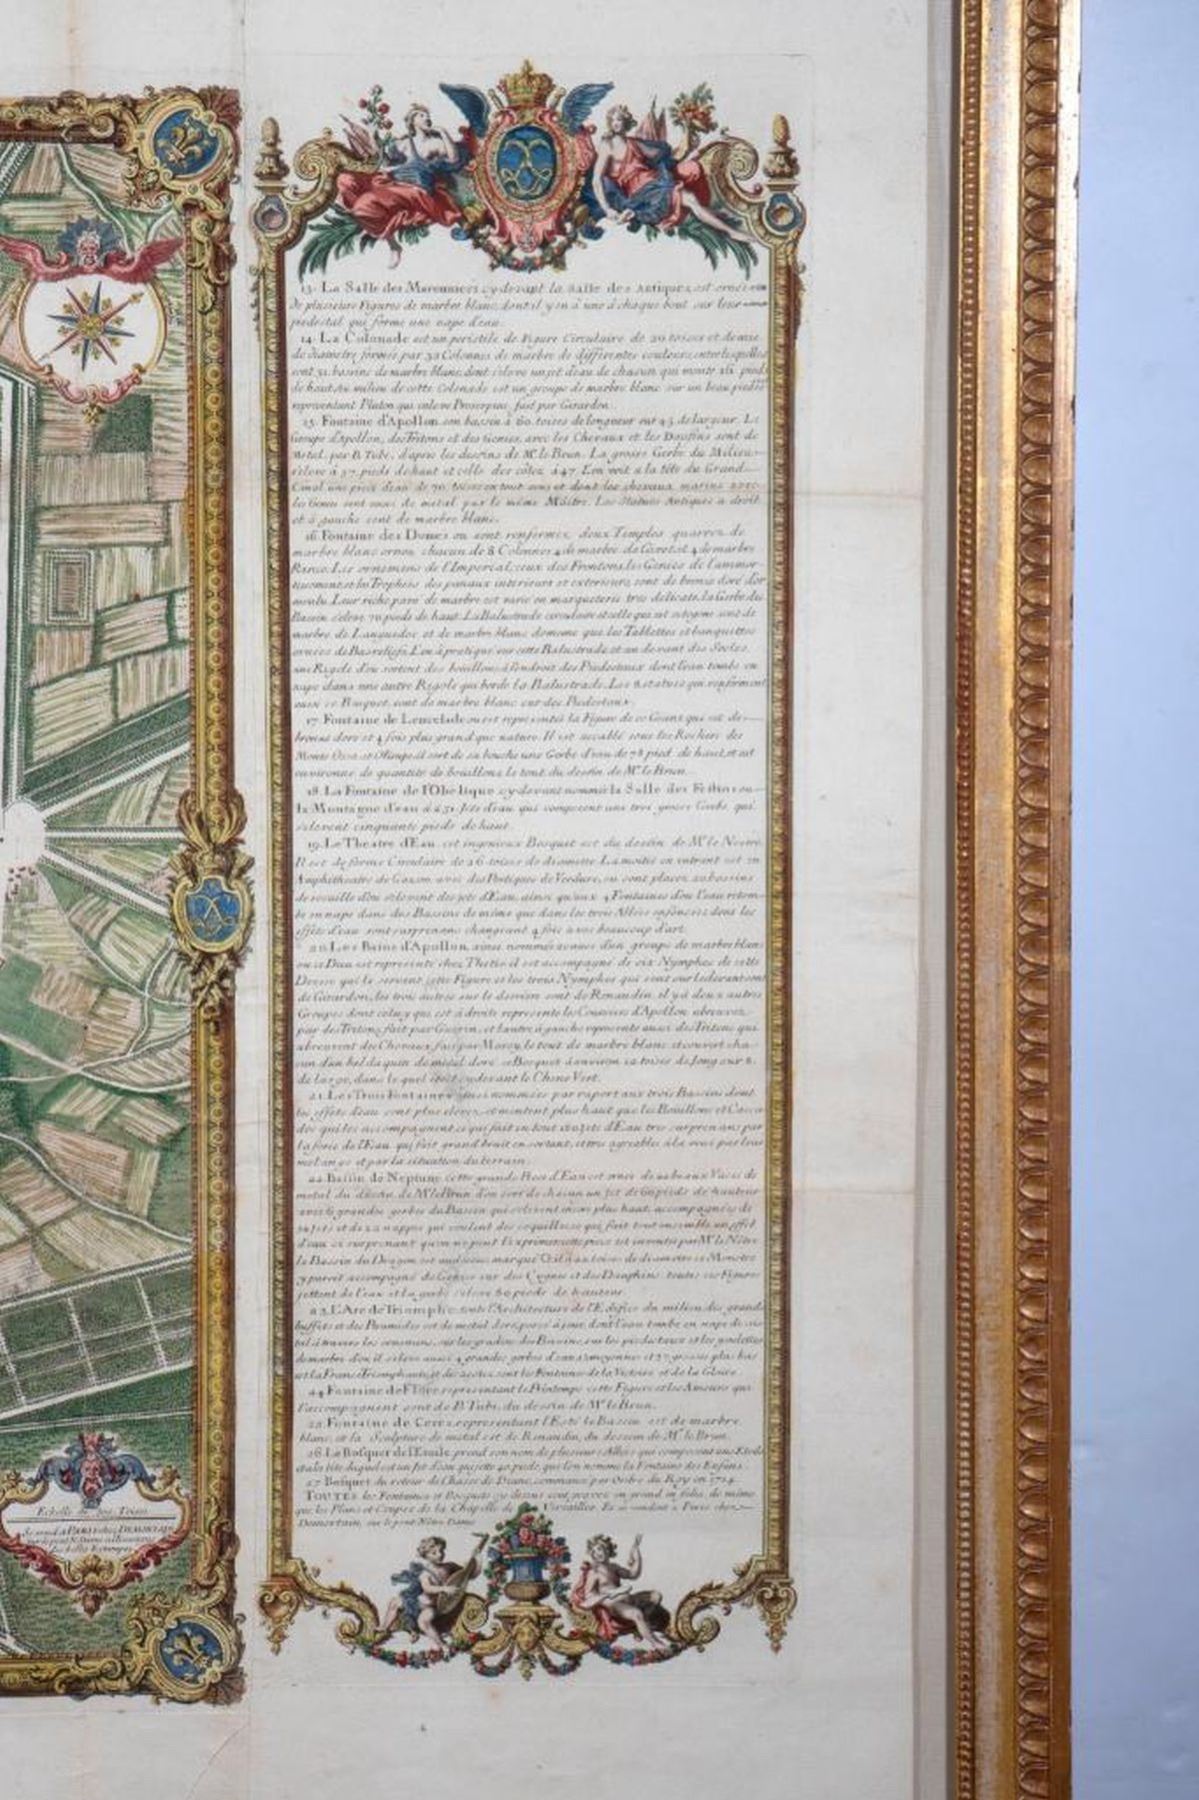 13. La Salle des Maronniers cy devant la Salle des Antiques, est ornée
de plusieurs Figures de marbre blanc, dont il y en à une à chaque bout sur leur
piedestal qui forme une nape d'eau.
14. La Colonade est un peristile de Figure Circulaire de 20 toises et demie
de diametre, formée par 32 Colonnes de marbre de differentes couleurs, entre lesquelles
sont 31. bassins de marbre blanc, dont s'eleve un jet d'eau de chacun qui monte 16 pieds
de haut. Au milieu de cette Colonade est un groupe de marbre blanc sur un beau piedestal
representant Pluton qui enleve Proserpine, fait par Girardon.
15. Fontaine d'Apollon, son bassin à 60. toises de longueur sur 45 de largeur. Le
Groupe d'Apollon, des Tritons et des Genies, avec les Chevaux et les Dauffins sont de
Metal, par B. Tubi, d'apres les dessins de Mr. le Brun. La grosse Gerbe du Milieu
s'eleve à 57. pieds de haut et celle des côtez à 47. L'on voit a la tête du Grand
Canal une piece d'eau de 70 toises en tout sens et dont les chevaux marins avec
les Genies sont aussi de metal par le même Maître. Les Statues Antiques a droit
et à gauche sont de marbre blanc.
16. Fontaine des Domes ou sont renfermez deux Temples quarrez de
marbre blanc ornez chacun de 8 Colonnes 4 de marbre de
Rance. Les ornemens de l'Imperial, ceux des Frontons, les Genies de l'ammor-
tissement et les Trophées des panaux interieurs et exterieurs, sont de bronze doré d'or
moulu. Leur riche pavé de marbre est varié en marqueterie tres delicate. la Gerbe du
Bassin s'eleve 70 pieds de haut. La Balustrade circulaire et celle qui est octogone sont de
marbre de Languedoc et de marbre blanc de meme que les Tablettes et banquettes
ornées de Basreliefs. L'on à pratiqué sur cette Balustrade et au devant des Socles
une Rigole d'ou sortent des bouillons à l'endroit des Piedestaux dont l'eau tombe en
nape dans une autre Rigole qui borde la Balustrade. Les 8 statues qui renferment
aussi ce Bosquet, sont de marbre blanc sur des Piedestaux.
17. Fontaine de Lencelade ou est representé la Figure de ce Geant qui est de
bronze doré et 4 fois plus grand que nature. Il est accablé sous les Rochers des
Monts Ossa et Olimpe, il sort de sa bouche une Gerbe d'eau de 78 pied. de haut, et est
environné de quantité de bouillons, le tout du dessin de Mr. le Brun.
18. La Fontaine de l'Obelisque cy devant nommée la Salle des Festins ou
la Montagne d'eau à 231. Jets d'eau qui composent une tres grosse Gerbe, qui
s'elevent cinquante pieds de haut.
19. Le Theatre d'Eau, cet ingenieux Bosquet est du dessin de Mr. le Nostre.
Il est de forme Circulaire de 26 toises de diametre. La moitié en entrant est en
Amphitheatre de Gazon avec des Portiques de Verdure, ou sont placez 20 bassins
de rocaille d'ou s'elevent des jets d'Eau, ainsi qu'aux 4 Fontaines d'ou l'eau retom-
be en nape dans des Bassins de même que dans les trois Allées enfoncées dont les
effets d'eau sont surprenans changeant 4 fois avec beaucoup d'art.
20. Les Bains d'Apollon, ainsi nommées d'un groupe de marbre blanc
ou ce Dieu est representé chez Thetis il est accompagné de six Nymphes de cette
Deesse qui le servent, cette Figure et les trois Nymphes qui sont sur le devant sont
de Girardon, les trois autres sur le derriere sont de Renaudin. il y à deux autres
Groupes dont celuy qui est à droite represente les Coursiers d'Apollon abreuvez
par des Tritons, fait par Guerin, et l'autre à gauche represente aussi des Tritons qui
abreuvent des Chevaux, fait par Marsy, le tout de marbre blanc et couvert cha-
cun d'un bel daquin de metal doré. ce Bosquet à environ 12 toises de long sur 8.
de large, dans le quel étoit cy devant le Chene Vert.
21. Les Trois Fontaines ainsi nommées par raport aux trois Bassins dont
les effets d'eau sont plus elevez, et montent plus haut que les Bouillons et Casca-
des qui les accompagnent, ce qui fait en tout Jets d'Eau tres surprenans par
la force de l'Eau qui fait grand bruit en sortant, et tres agreables à la veue par leur
melange et par la situation du terrain.
22. Bassin de Neptune cette grande Piece d'Eau est ornée de 22 beaux Vases de
metal du dessin de Mr. le Brun d'ou sort de chacun un Jet de 60 pieds de hauteur
avec 6 grandes gerbes du Bassin qui s'elevent encor plus haut, accompagnées de
Jets et de 22 nappes qui coulent des coquilles, ce qui fait tout ensemble un effet
d'eau si surprenant qu'on ne peut l'exprimer, cette piece est inventée par Mr. le Nôtre
le Bassin du Dragon est au dessus marqué toises de diametre ce Monstre
y paroit accompagné de Genies sur des Cygnes et des Dauphins, toutes ces Figures
jettent de l'eau et la gerbe s'eleve 60 pieds de hauteur.
23. L'Arc de Triomphe, toute l'Architecture de l'Edifice du milieu, des grands
buffets et des Piramides est de metal doré, percé à jour, dont l'eau tombe en nape de cris-
tal à travers les ornemens, sur les gradins des Bassins, sur les piedestaux et les goulettes
de marbre, d'ou il s'eleve aussi 4 grandes gerbes d'eau moyennes et grosses plus bas
est la France Triomphante, et des costez sont les Fontaines de la Victoire et de la Gloire.
24. Fontaine de Flore, representant le Printemps cette Figure et les Amours qui
l'accompagnent sont de B. Tubi, du dessin de Mr. le Brun.
25. Fontaine de Cerez, representant l'Esté le Bassin est de marbre
blanc, et la Sculpture de metal est de Renaudin, du dessein de Mr. le Brun.
26. Le Bosquet de l'Etoile, prend son nom de plusieurs Allées qui composent une Etoile
et à la tête duquel est un Jet d'eau qui jette 40 pieds, que l'on nomme la Fontaine des Enfans.
27. Bosquet du retour de Chasse de Diane, commencé par Ordre du Roy en 1714.
TOUTES les Fontaines et Bosquets cy dessus sont gravez en grand in folio, de même
que les Plans et Coupes de la Chapelle de Versailles. Et se vendent à Paris chez
Demortain, sur le pont Nôtre Dame.
Echelle de 300 Toises
Se vend A PARIS chez DEMORTAIN
sur le pont N. Dame
les belles Estampes